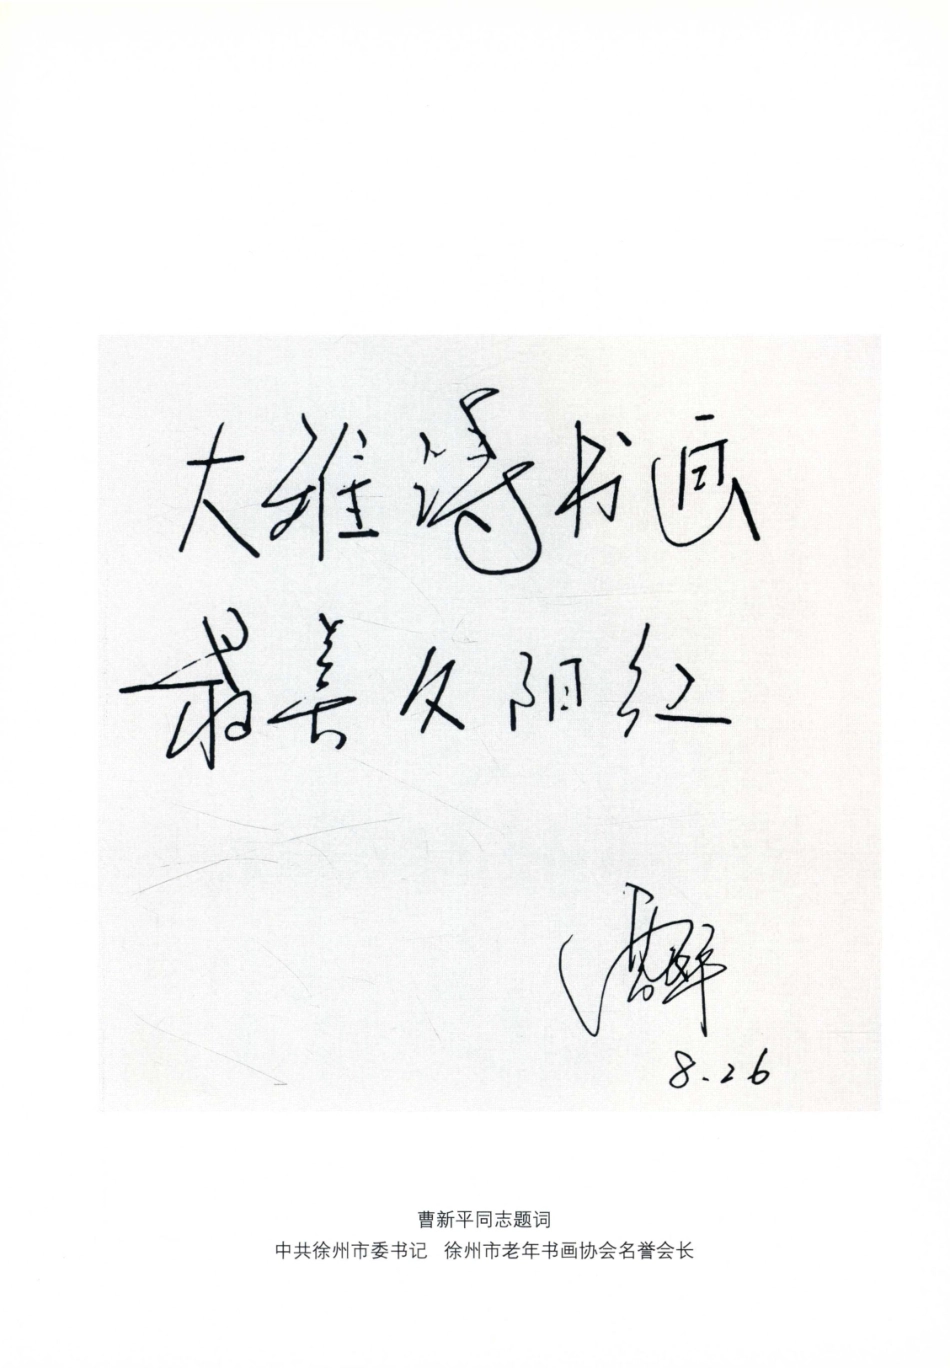 大雅诗书画
最美夕阳红
8.26
曹新平同志题词
中共徐州市委书记 徐州市老年书画协会名誉会长